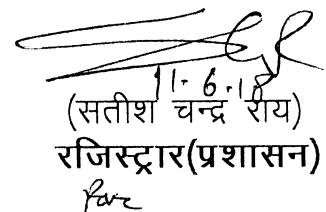 11.6.18
(सतीश चन्द्र राय)
रजिस्ट्रार(प्रशासन)